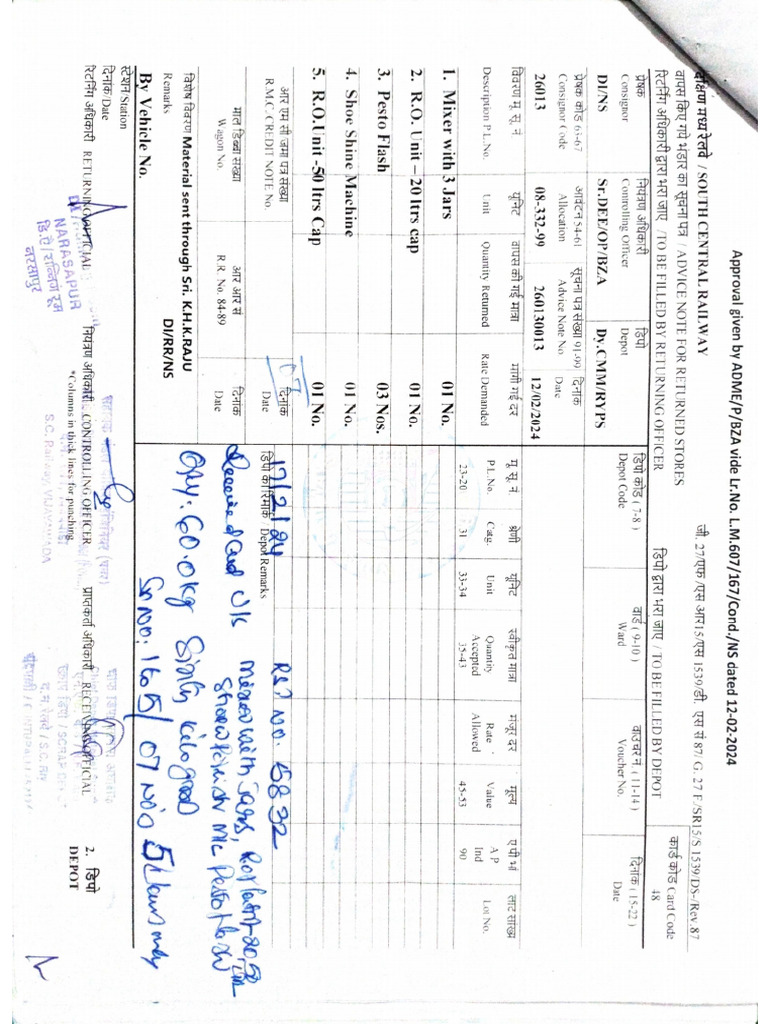 Approval given by ADME/P/BZA vide Lr.No. L.M.607/167/Cond./NS dated 12-02-2024
जी. 27/एफ/एस आर15/एस 1539/डी. एस सं 87/ G. 27 F/SR15/S 1539/DS-/Rev.87
दक्षिण मध्य रेलवे / SOUTH CENTRAL RAILWAY
वापस किए गये भंडार का सूचना पत्र / ADVICE NOTE FOR RETURNED STORES
रिटर्निंग अधिकारी द्वारा भरा जाए / TO BE FILLED BY RETURNING OFFICER
डिपो द्वारा भरा जाए / TO BE FILLED BY DEPOT
कार्ड कोड Card Code
48
प्रेषक नियंत्रण अधिकारी डिपो
Consignor Controlling Officer Depot
DI/NS Sr.DEE/OP/BZA Dy.CMM/RYPS
डिपो कोड ( 7-8 ) वार्ड ( 9-10 ) वाउचर नं. ( 11-14 ) दिनांक ( 15-22 )
Depot Code Ward Voucher No. Date
प्रेषक कोड 63-67 आवंटन 54-61 सूचना पत्र संख्या 91-99 दिनांक
Consignor Code Allocation Advice Note No Date
26013 08-332-99 260130013 12/02/2024
विवरण मू. सू. नं यूनिट वापस की गई मात्रा मागी गई दर
Description P.L.No. Unit Quantity Returned Rate Demanded
मू. सू. नं श्रेणी यूनिट स्वीकृत मात्रा मंजूर दर मूल्य ए पी भां लाट सांख्य
P.L.No. Catg. Unit Quantity Accepted Rate Allowed Value A P Ind Lot No.
23-20 31 33-34 35-43 45-53 90
1. Mixer with 3 Jars 01 No.
2. R.O. Unit – 20 ltrs cap 01 No.
3. Pesto Flash 03 Nos.
4. Shoe Shine Machine 01 No.
5. R.O.Unit -50 ltrs Cap 01 No.
07
आर एम सी जमा पत्र संख्या दिनांक
R.M.C. CREDIT NOTE No. Date
डिपो का रिमार्क Depot Remarks
17/2/24 RST NO. 6832
माल डिब्बा संख्या आर आर सं दिनांक
Wagon No. R.R. No. 84-89 Date
Received and U/s
Mixer with Jars,
विशेष विवरण Material sent through Sri. K.H.K.RAJU
Remarks DI/RR/NS
Qty: 60.0kg Sixty kilo good
By Vehicle No.
Sr No: 1 to 5/ 07 No's
स्टेशन/Station
दिनांक/Date
रिटर्निंग अधिकारी RETURNING OFFICIAL नियंत्रण अधिकारी CONTROLLING OFFICER प्राप्तकर्ता अधिकारी RECEIVING OFFICIAL
*Columns in thick lines for punching
2. डिपो
DEPOT
NARASAPUR
डि.ऐ/रन्निंग रूम
नरसापुर
S.C. Railway, VIJAYAWADA